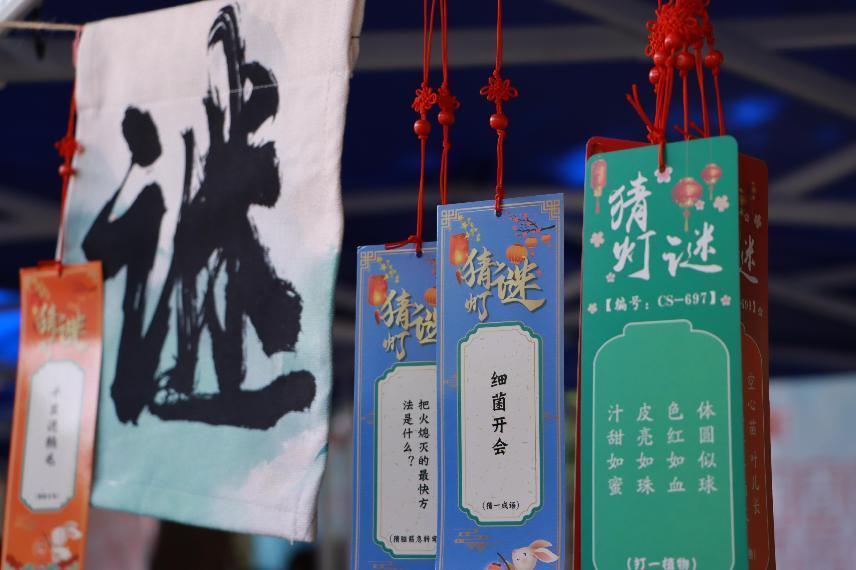 谜
猜
灯谜
千里送鹅毛
猜
灯谜
把火熄灭的最快方
法是什么？
猜
灯谜
细菌开会
(猜一成语)
猜
灯谜
【编号：CS-697】
体圆似球
色红如血
皮亮如珠
汁甜如蜜
(打一植物)
谜
空心苗叶儿长